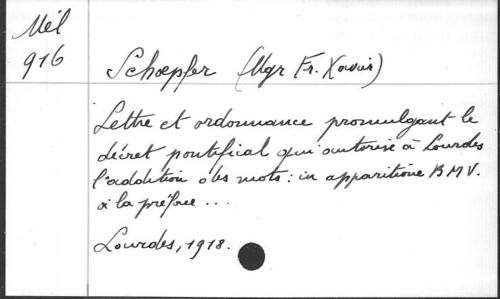 Mél
916
Schoepfer (Mgr Fr. Xavier)
Lettre et ordonnance promulgant le
décret pontifical qui autorise à Lourdes
l'addition des mots : in apparitione B M V.
à la préface ...
Lourdes, 1918.